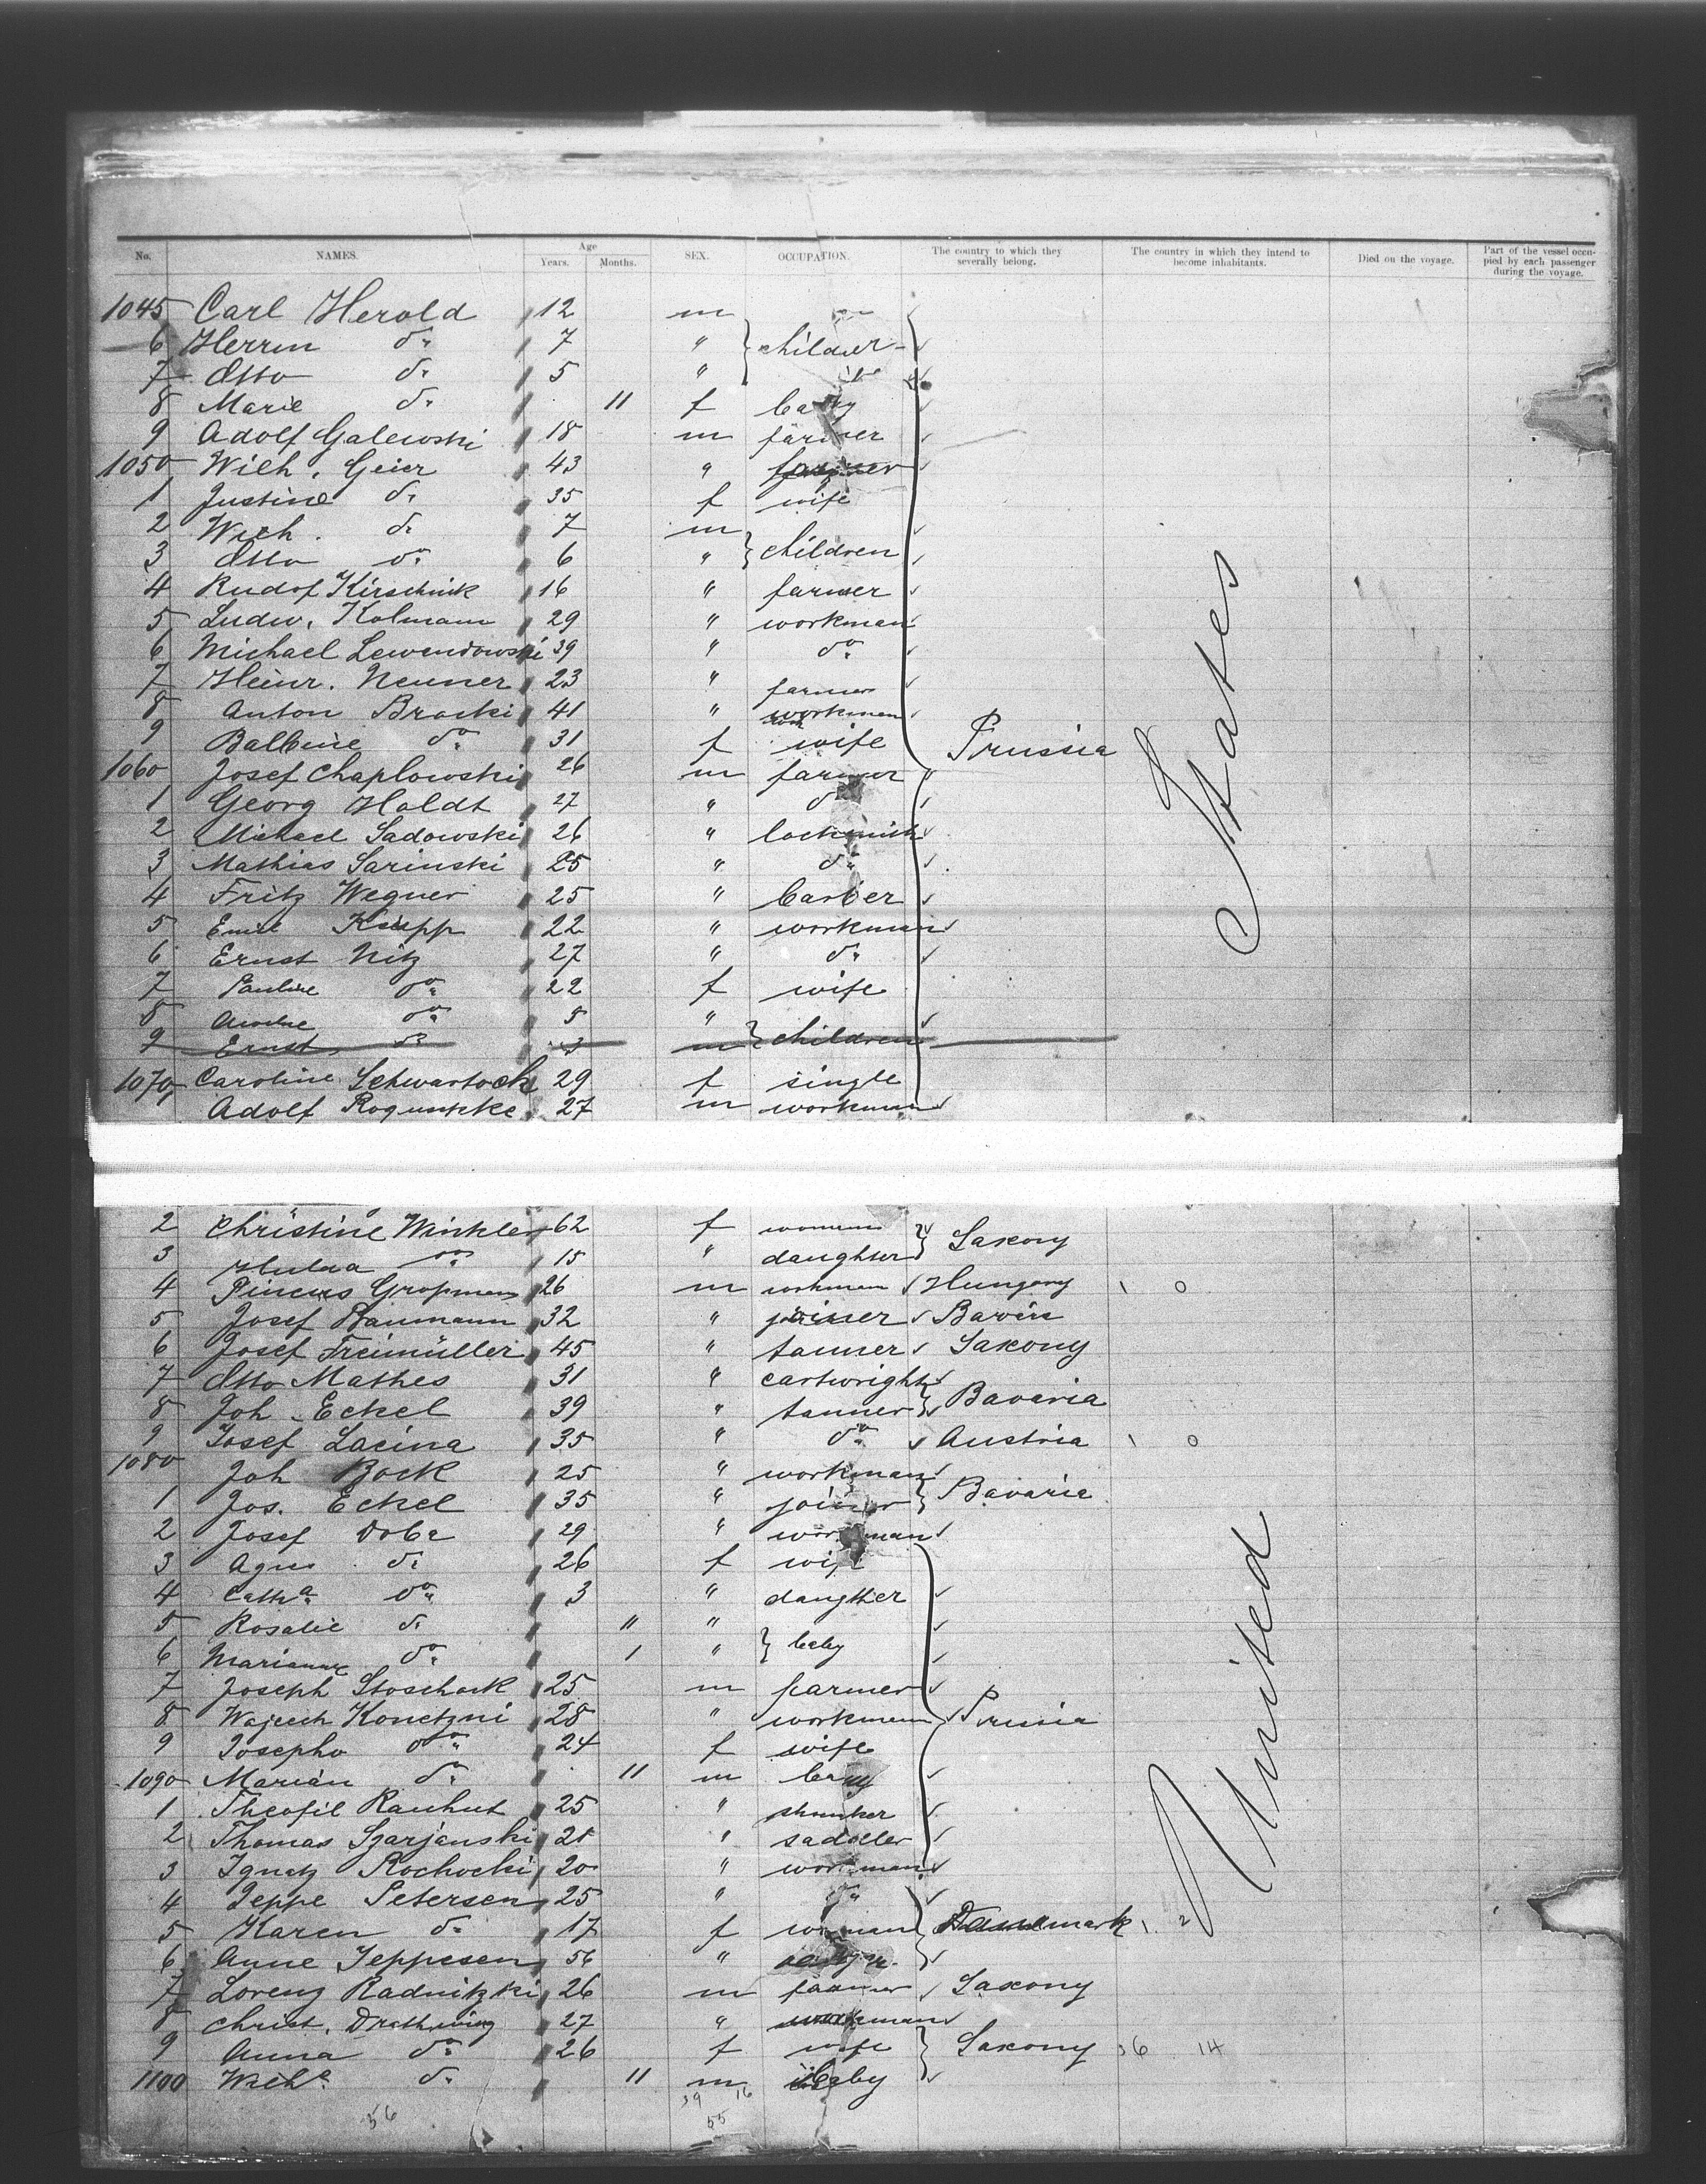 No. NAMES. Age Years. Months. SEX. OCCUPATION. The country to which they severally belong. The country in which they intend to become inhabitants. Died on the voyage. Part of the vessel occupied by each passenger during the voyage.
1045 Carl Herold 12 m
6 Herrm do 7 " children
7 Otto do 5 "
8 Marie do 11 f baby
9 Adolf Galewski 18 m farmer
1050 Wilh. Geier 43 " farmer
1 Justine do 35 f wife
2 Wilh. do 7 m
3 Otto do 6 " children
4 Rudof Kirschnik 16 " farmer
5 Ludw. Kolmann 29 " workman
6 Michael Lewendowski 39 " do
7 Heinr. Neuner 23 " farmer
8 Anton Brocki 41 " workman
9 Balbine do 31 f wife Prussia
1060 Josef Chaplowski 26 m farmer
1 Georg Holdt 27 " do
2 Michael Sadowski 26 " locksmith
3 Mathias Sarinski 25 " do
4 Fritz Wegner 25 " barber
5 Emil Krupp 22 " workman
6 Ernst Nitz 27 " do
7 Pauline do 22 f wife
8 do 5 "
9 Ernst do 3 m children
1070 Caroline Schwartock 29 f single
1 Adolf 27 m workman
States
2 Christine Winkler 62 f woman Saxony
3 Hulda do 15 " daughter
4 Pincus Gropman 26 m workman Hungary 1 0
5 Josef Baumann 32 " joiner Bavaria
6 Josef Freimüller 45 " tanner Saxony
7 Otto Mathes 31 " cartwright
8 Joh. Eckel 39 " tanner Bavaria
9 Josef Lacina 35 " do Austria 1 0
1080 Joh Bock 25 " workman
1 Jos. Eckel 35 " joiner Bavaria
2 Josef Doba 29 " workman
3 Agnes do 26 f wife
4 Catha do 3 " daugther
5 Rosalie do 11 "
6 Marianne do 1 " baby
7 Joseph Stoschack 25 m farmer
8 Wojcech Konetzni 28 " workman Prussia
9 Josepha do 24 f wife
1090 Marian do 11 m baby
1 Theofil Rauhut 25 "
2 Thomas Szarjanski 28 " saddler
3 Ignatz Rochocki 20 " workman
4 Jeppe Petersen 25 " do
5 Karen do 17 f woman Danemark 1 2
6 Anne Jeppesen 56 "
7 Lorenz Radnitzki 26 m farmer Saxony
8 Christ. 27 " workman
9 Anna do 26 f wife Saxony 36 14
1100 Wilhe. do 11 m baby
United
39 16
56 55